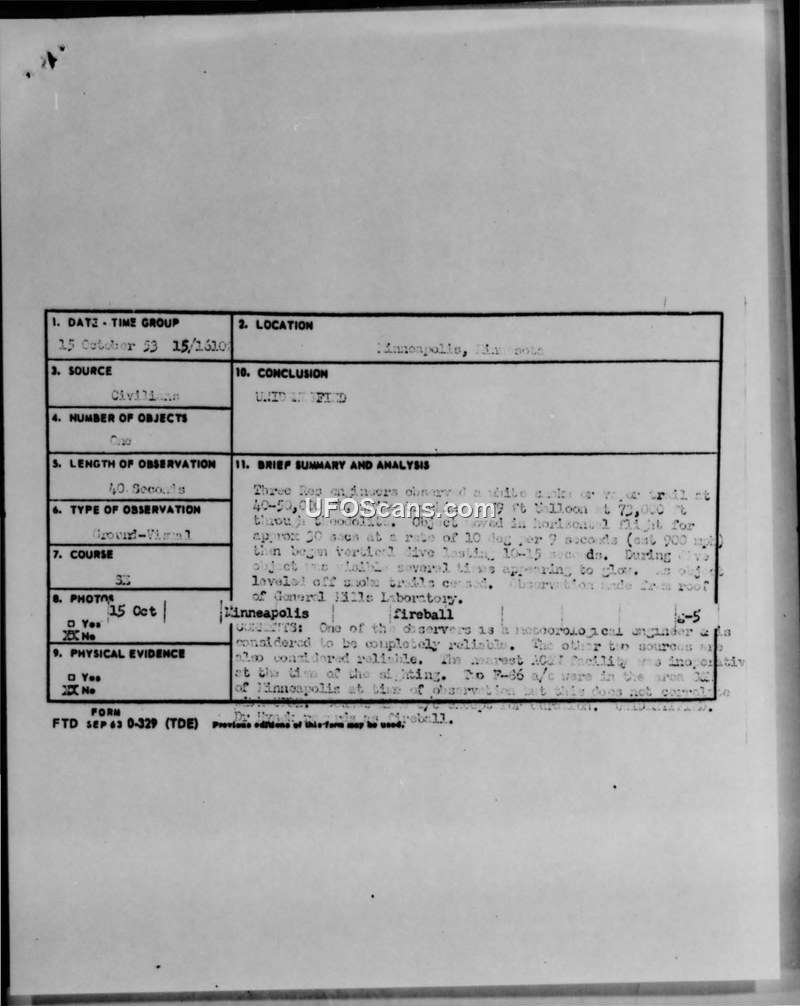 1. DATE - TIME GROUP
15 October 53 15/1610
2. LOCATION
Minneapolis, Minnesota
3. SOURCE
Civilians
10. CONCLUSION
UNIDENTIFIED
4. NUMBER OF OBJECTS
One
5. LENGTH OF OBSERVATION
40 Seconds
11. BRIEF SUMMARY AND ANALYSIS
Three Res engineers observed a white smoke or vapor trail at
40-50, ft balloon at 73,000 ft
UFOScans.com
through theodolite. Object moved in horizontal flight for
approx 30 secs at a rate of 10 deg per 9 seconds (est 900 mph)
then began vertical dive lasting 10-15 seconds. During dive
object was visible several times appearing to glow. As object
leveled off smoke trails ceased. Observation made from roof
of General Mills Laboratory.
6. TYPE OF OBSERVATION
Ground-Visual
7. COURSE
SE
8. PHOTOS
□ Yes
XX No
15 Oct Minneapolis fireball g-5
COMMENTS: One of the observers is a meteorological engineer & is
considered to be completely reliable. The other two sources are
also considered reliable. The nearest facility was inoperativ
at the time of the sighting. Two F-86 a/c were in the area
of Minneapolis at time of observation but this does not correlate
for duration. UNIDENTIFIED.
Dr Hynek regards as fireball.
9. PHYSICAL EVIDENCE
□ Yes
XX No
FORM
FTD SEP 63 0-329 (TDE) Previous editions of this form may be used.